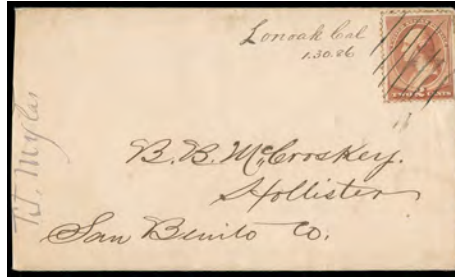 Lonoak Cal
1.30.86
TWO 2 CENTS
B. B. McCroskey.
Hollister
San Benito Co.
T.J. Mylar